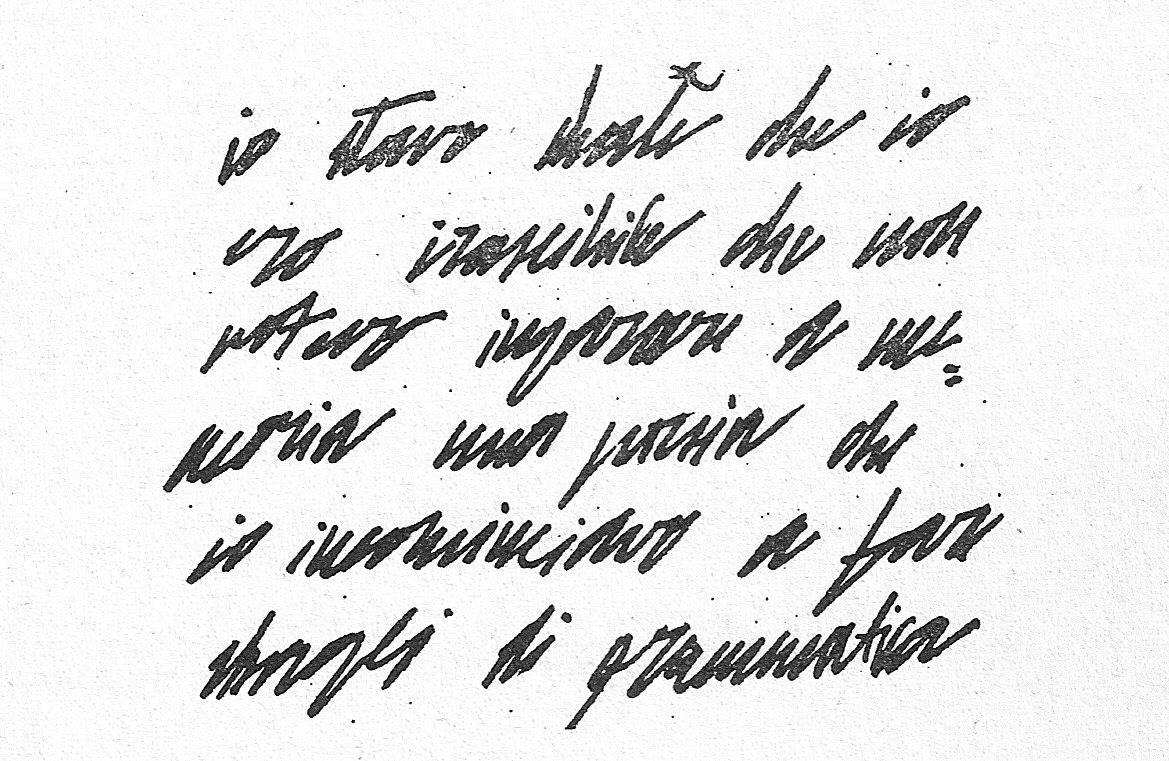 io stavo che io
ero irascibile che non
potevo imparare a me=
moria una poesia che
io incominciavo a far
sbagli di grammatica